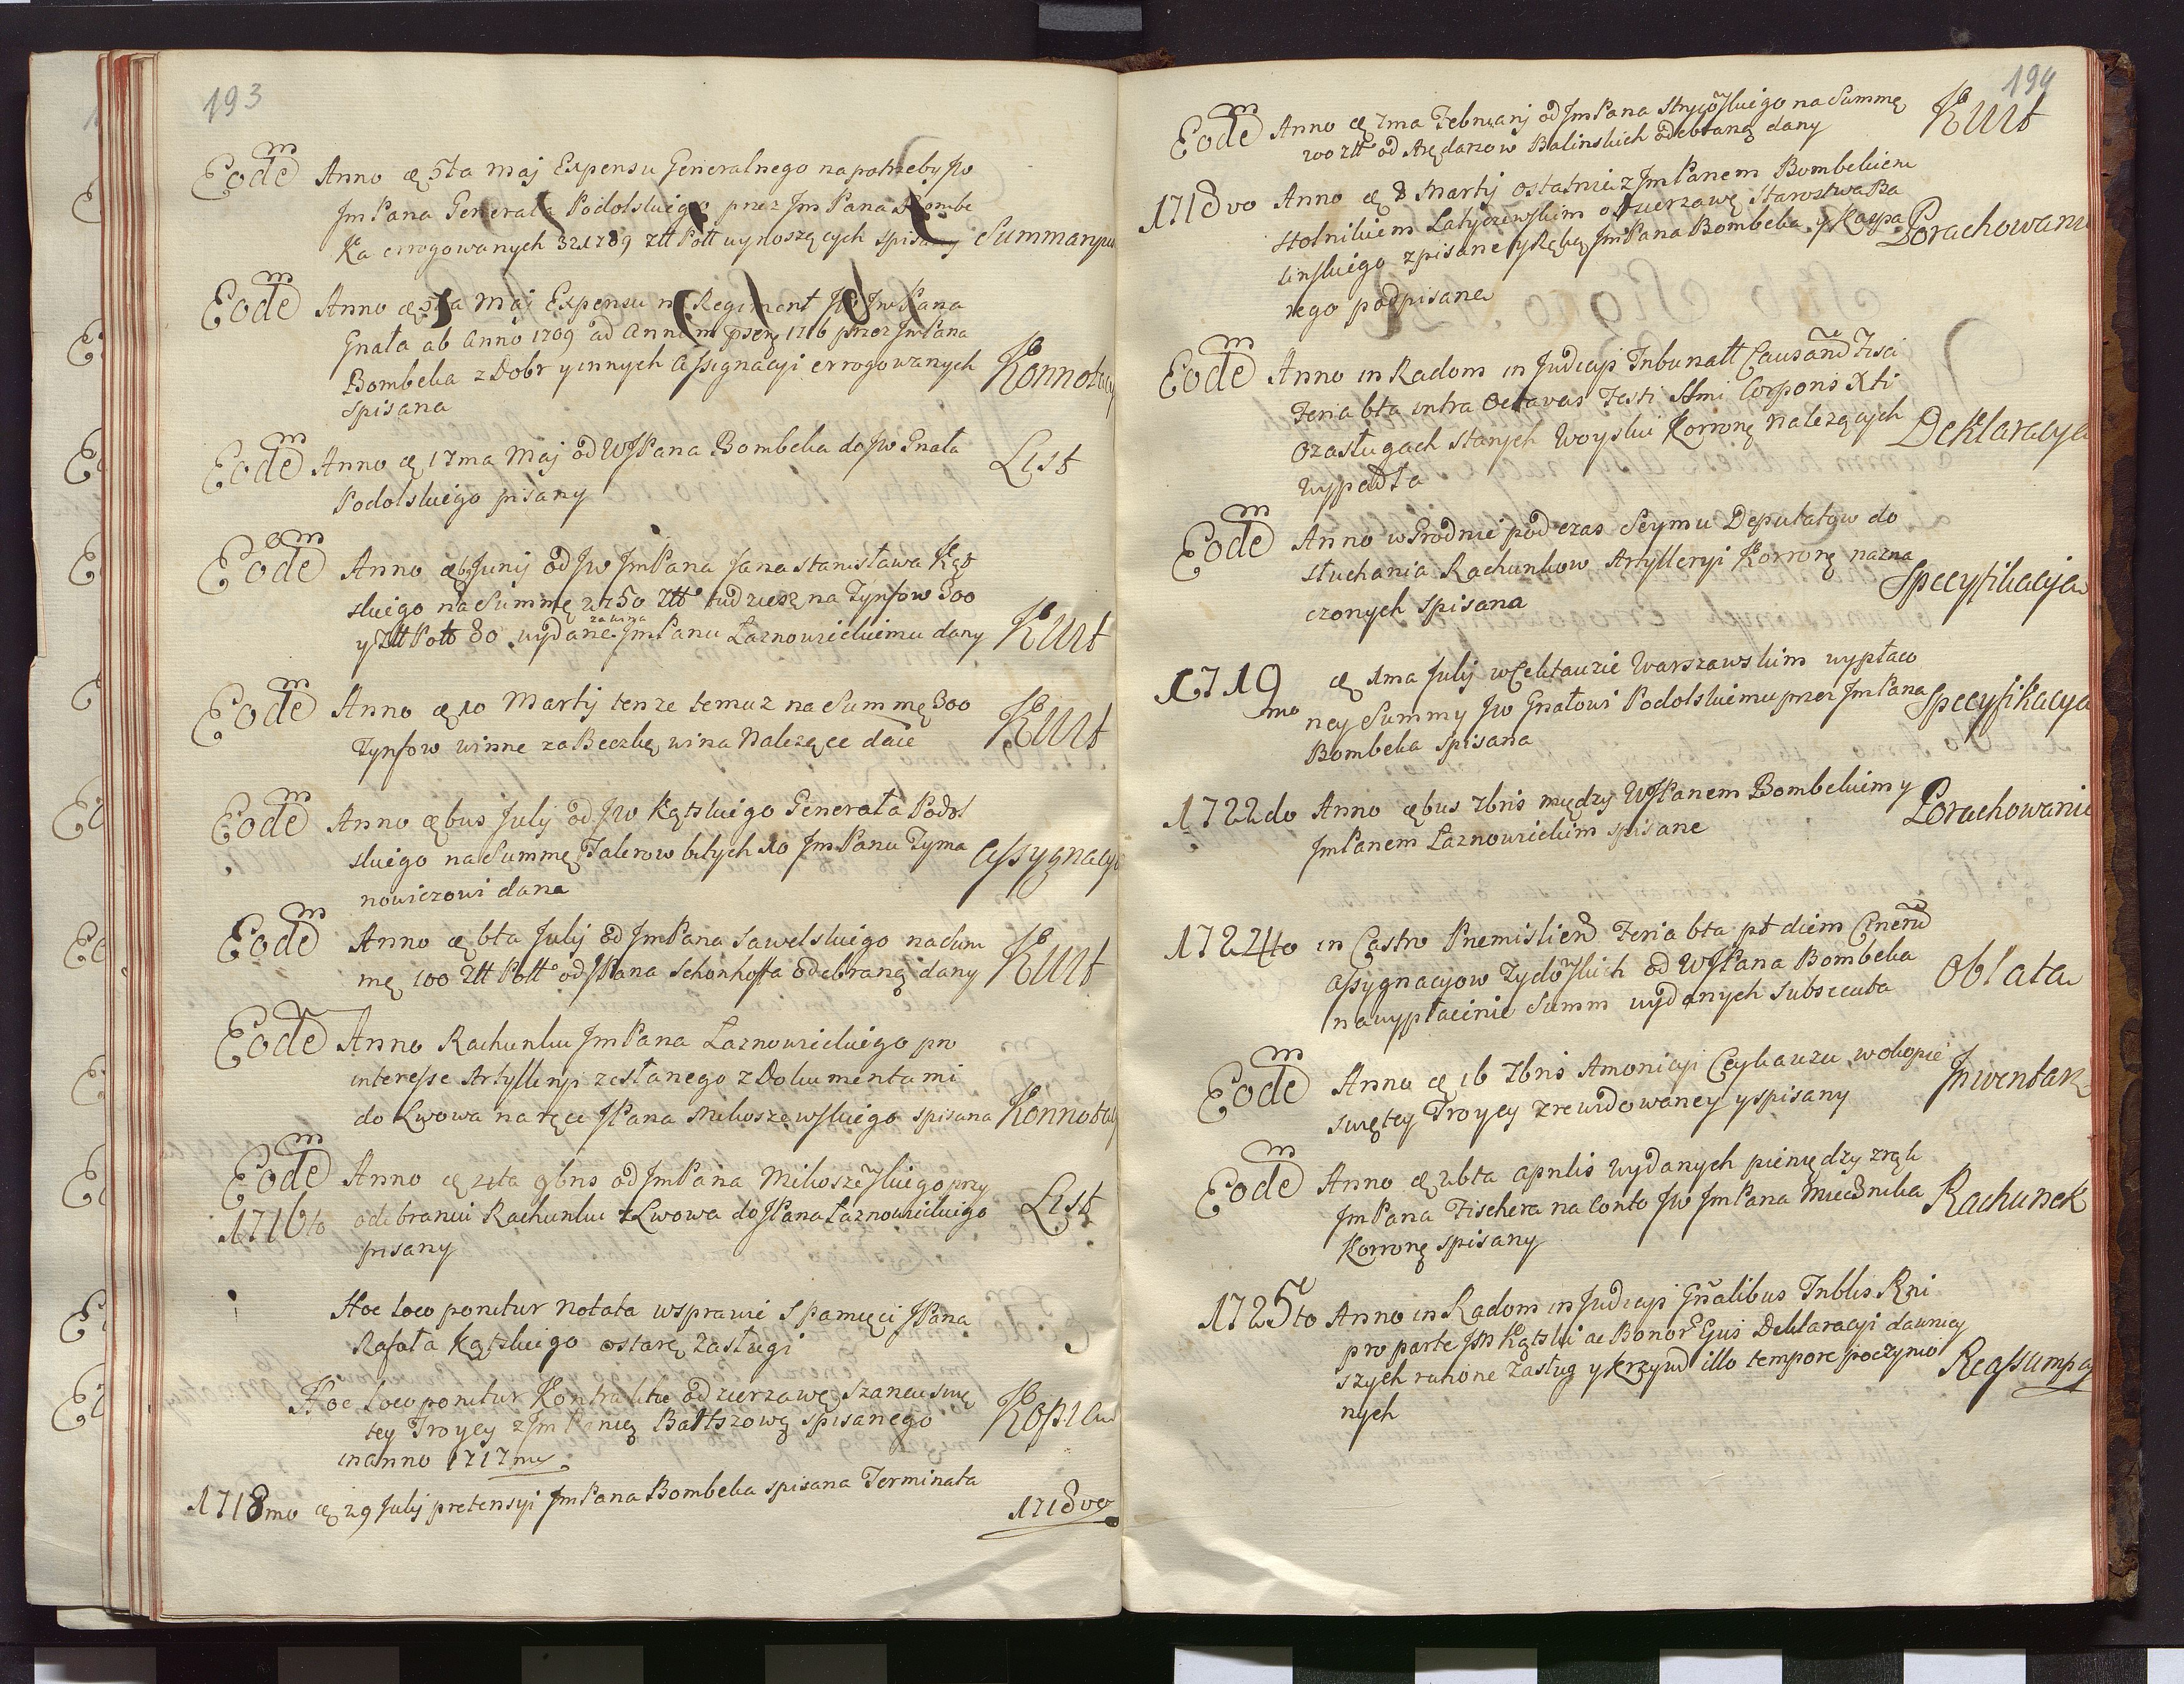 193
Eodem Anno die 5ta Maj Expensu Generalnego na potrzeby Jw
Jm Pana Generała Podolskiego przez Jm Pana Bombe
Ka errogowanych 321789 Ztt Poll wynoszących spisany Summaryu
Eodem Anno die 5ta Maj Expensu na Regiment Jw Jm Pana
Gnała ab Anno 1709 ad Annum psens 1716 przez Jm Pana
Bombeka z Dobr y innych Assignacyi errogowanych Konnotacy
spisana
Eodem Anno die 17ma Maj od WJPana Bombeka do Jw Gnała List
Podolskiego pisany
Eodem Anno die 6 Junij od Jw Jm Pana Jana Stanisława Kąt
skiego na Summę 2750 Ztt tudziesz na Tynfow 300
za wina
y Ztt Poll 80 wydane Jm Panu Łaznowieckiemu dany Kwit
Eodem Anno die 10 Martij tenze temuz na Summę 300
Tynfow winne za Beczkę wina Nalezące daie Kwit
Eodem Anno die 6us July od Jw Kątskiego Generała Podol
skiego na Summę Talerow bitych 10 Jm Panu Tyma Assygnacya
nowiczowi dana
Eodem Anno die 6ta July od Jm Pana Sawelskiego na Sum
mę 100 Ztt Poll od JPana Schonhoffa odebraną dany Kwit
Eodem Anno Rachunku Jm Pana Łaznowieckiego pro
interesse Artylleryi zesłanego z Dokumentami
do Lwowa na ręce JPana Mikoszewskiego spisana Konnotacy
Eodem Anno die 24ta 9bris od Jm Pana Mikoszewskiego przy
1716to odebraniu Rachunku z Lwowa do JPana Łaznowieckiego List
pisany
Hoc loco ponitur Notata w sprawie S Pamięci JPana
Rafała Kątskiego o stare Zasługi
Hoc loco ponitur Kontraktu o dzierzawę Szancu Swię
tey Troycy z Jm Panią Baltszową spisanego Kopia
in anno 1717mo
1718mo die 29 Julij pretensyi Jm Pana Bombeka spisana Terminata
1718vo
194
Eodem Anno die 7ma Februarij od Jm Pana Stryiowskiego na Summę
200 Ztt od Arędarzow Balinskich odebraną dany Kwit
1718vo Anno die 8 Martij ostatnie z Jm Panem Bombekiem
Stolnikiem Latyczewskim o dzierzawę Starostwa Ba
linskiego zpisane y Ręką Jm Pana Bombeka y Kacpa Porachowanie
rego podpisane
Eodem Anno in Radom in Judicys Tribunall Causand Fisci
Feria 6ta intra Octavas Festi SSmi Corporis Xti
o zasługach starych Woysku Koronne nalezących Deklaracya
wypadła
Eodem Anno w Grodnie pod czas Seymu Deputatow do
słuchania Rachunkow Artylleryi Koronne nazna Specyfikacya
czonych spisana
1719mo die 1ma Julij w Cekhauzie Warszawskim wypłaco
ney Summy Jw Gnałowi Podolskiemu przez Jm Pana Specyfikacya
Bombeka spisana
1722do Anno die 6us Xbris między WJPanem Bombekiem y Porachowanie
Jm Panem Łaznowieckim spisane
1724to in Castro Premislien Feria 6ta pt diem Cinerum
Assygnacyow Zydowskich od WJPana Bombeka
na wypłacenie Summ wydanych subsecuta Oblata
Eodem Anno die 16 Xbris Amonicyi Ceykauzu w okopie Inwentarz
swiętey Troycy zrewidowaney y spisany
Eodem Anno die 26ta Aprilis Wydanych pieniędzy z rąk
Jm Pana Fischera na Conto Jw Jm Pana Miecznika Rachunek
Koronne spisany
1725to Anno in Radom in Judicys Gnalibus Tribblis Rgni
pro parte JPP Kątski ac Bonor Ejus Deklaracyi dawniey
szych ratione Zasług y krzywd illo tempore poczynio Reassumpcya
nych